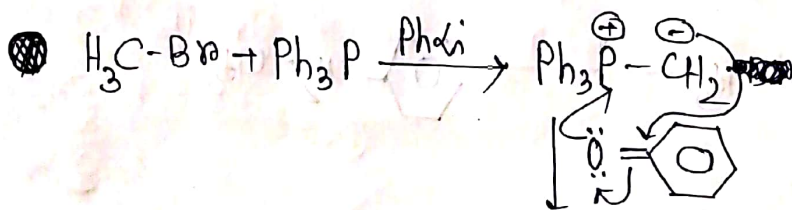 H₃C-Br + Ph₃P PhLi → Ph₃P⊕-CH₂⊖
O=